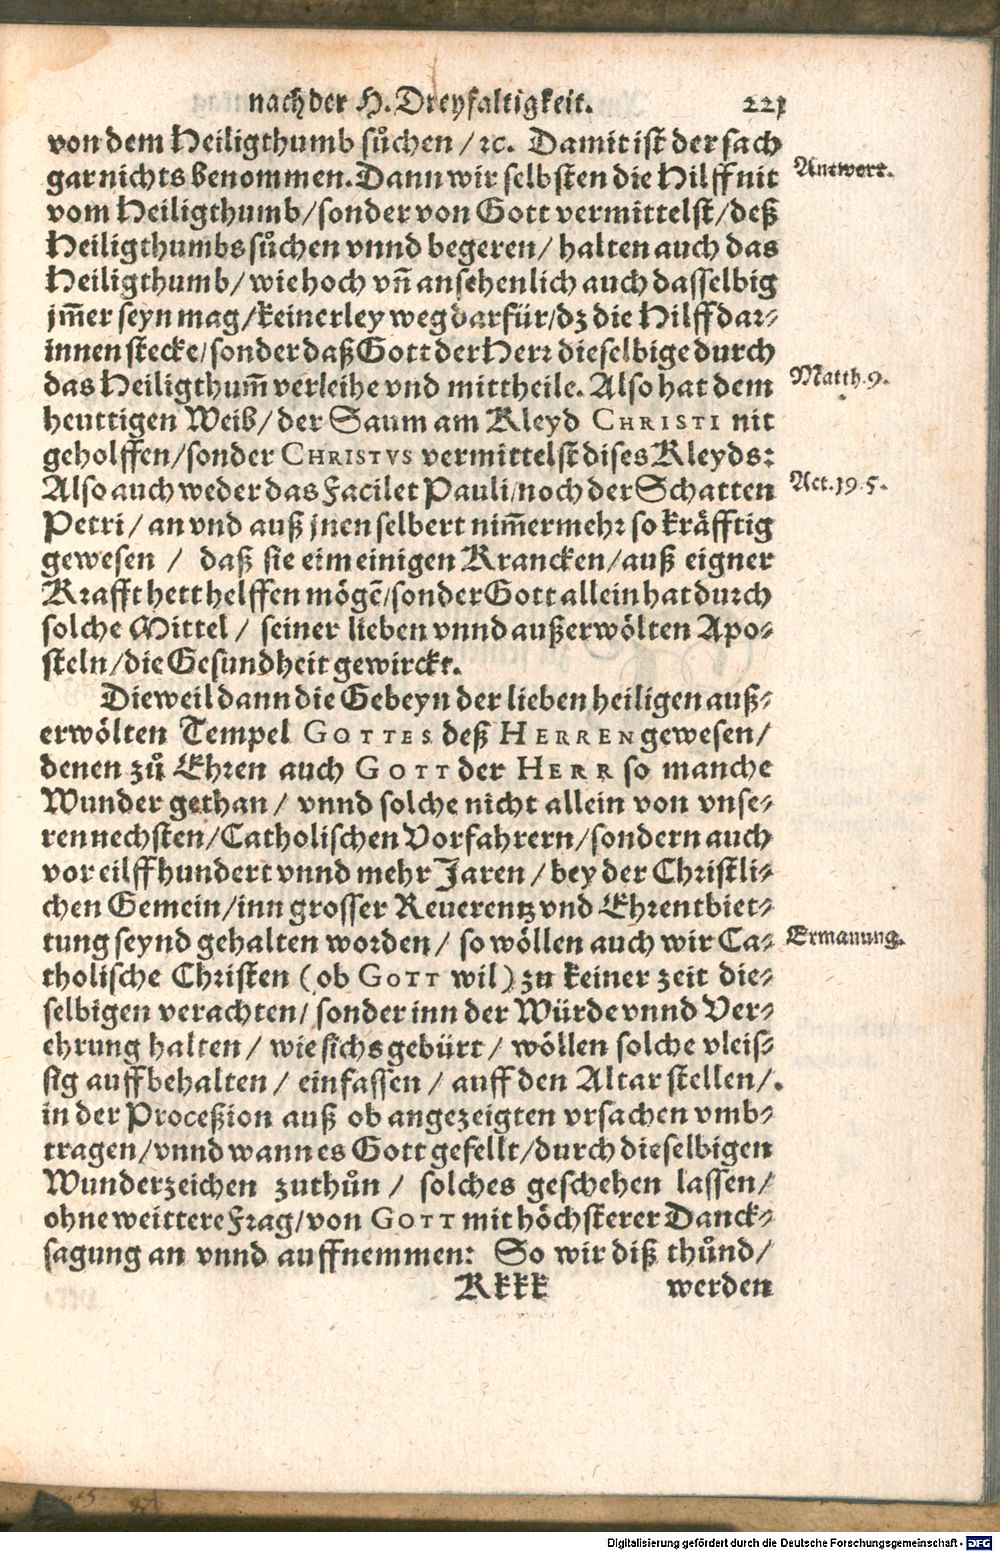 nach der H. Dreyfaltigkeit. 221
von dem Heiligthumb sůchen / ꝛc. Damit ist der sach
gar nichts benommen. Dann wir selbsten die Hilff nit
Antwort.
vom Heiligthumb / sonder von Gott vermittelst / deß
Heiligthumbs sůchen vnnd begeren / halten auch das
Heiligthumb / wie hoch vñ ansehenlich auch dasselbig
jm̃er seyn mag / keinerley weg darfür / dz die Hilff dar-
innen stecke / sonder daß Gott der Herr dieselbige durch
das Heiligthum̃ verleihe vnd mittheile. Also hat dem
Matth. 9.
heuttigen Weib / der Saum am Kleyd CHRISTI nit
geholffen / sonder CHRISTVS vermittelst dises Kleyds:
Also auch weder das Facilet Pauli / noch der Schatten
Act. 19. 5.
Petri / an vnd auß jnen selbert nim̃ermehr so kräfftig
gewesen / daß sie eim einigen Krancken / auß eigner
Krafft hett helffen mögẽ / sonder Gott allein hat durch
solche Mittel / seiner lieben vnnd außerwölten Apo-
steln / die Gesundheit gewirckt.
Dieweil dann die Gebeyn der lieben heiligen auß-
erwölten Tempel GOTTES deß HERREN gewesen /
denen zů Ehren auch GOTT der HERR so manche
Wunder gethan / vnnd solche nicht allein von vnse-
ren nechsten / Catholischen Vorfahrern / sondern auch
vor eilffhundert vnnd mehr Jaren / bey der Christli-
chen Gemein / inn grosser Reuerentz vnd Ehrentbiet-
tung seynd gehalten worden / so wöllen auch wir Ca-
Ermanung.
tholische Christen (ob GOTT wil) zu keiner zeit die-
selbigen verachten / sonder inn der Würde vnnd Ver-
ehrung halten / wie sichs gebürt / wöllen solche vleis-
sig auffbehalten / einfassen / auff den Altar stellen /
in der Proceßion auß ob angezeigten vrsachen vmb-
tragen / vnnd wann es Gott gefellt / durch dieselbigen
Wunderzeichen zuthůn / solches geschehen lassen /
ohne weittere Frag / von GOTT mit höchsterer Danck-
sagung an vnnd auffnemmen: So wir diß thůnd /
Kkkk werden
Digitalisierung gefördert durch die Deutsche Forschungsgemeinschaft - DFG